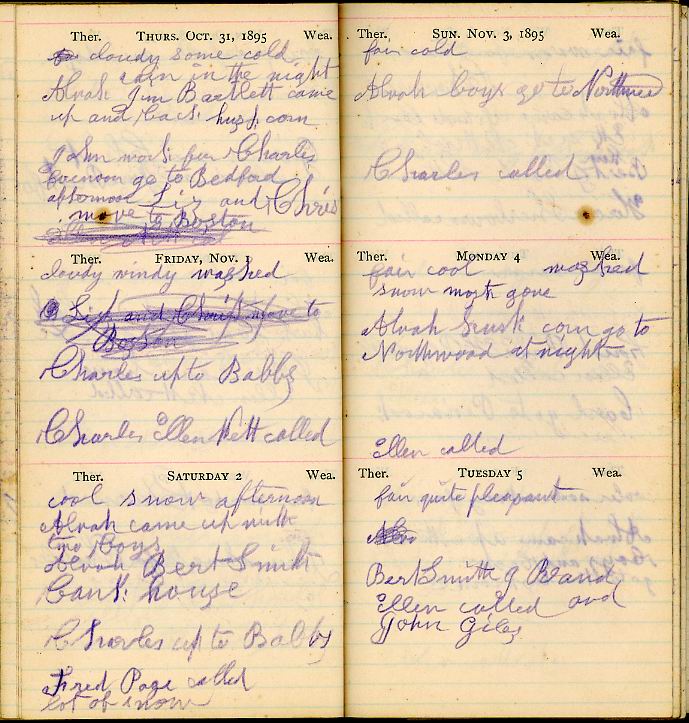 Ther. THURS. OCT. 31, 1895 Wea.
cloudy some cold
rain in the night
Alvah Jim Bartlett came
up and husk corn
John work for Charles
go to Bedford
afternoon Liz and Chris
move to Boston
Ther. FRIDAY, NOV. 1 Wea.
cloudy windy washed
Liz and Chris move to
Boston
Charles up to Babbs
Charles Ellen Nett called
Ther. SATURDAY 2 Wea.
cool snow afternoon
Alvah came up with
two boys
Alvah Bert Smith
bank house
Charles up to Babbs
Fred Page called
lot of snow
Ther. SUN. NOV. 3, 1895 Wea.
fair cold
Alvah boys go to Northwood
Charles called
Ther. MONDAY 4 Wea.
fair cool washed
snow most gone
Alvah husk corn go to
Northwood at night
Ellen called
Ther. TUESDAY 5 Wea.
fair quite pleasant
Bert Smith
Ellen called and
John Giles